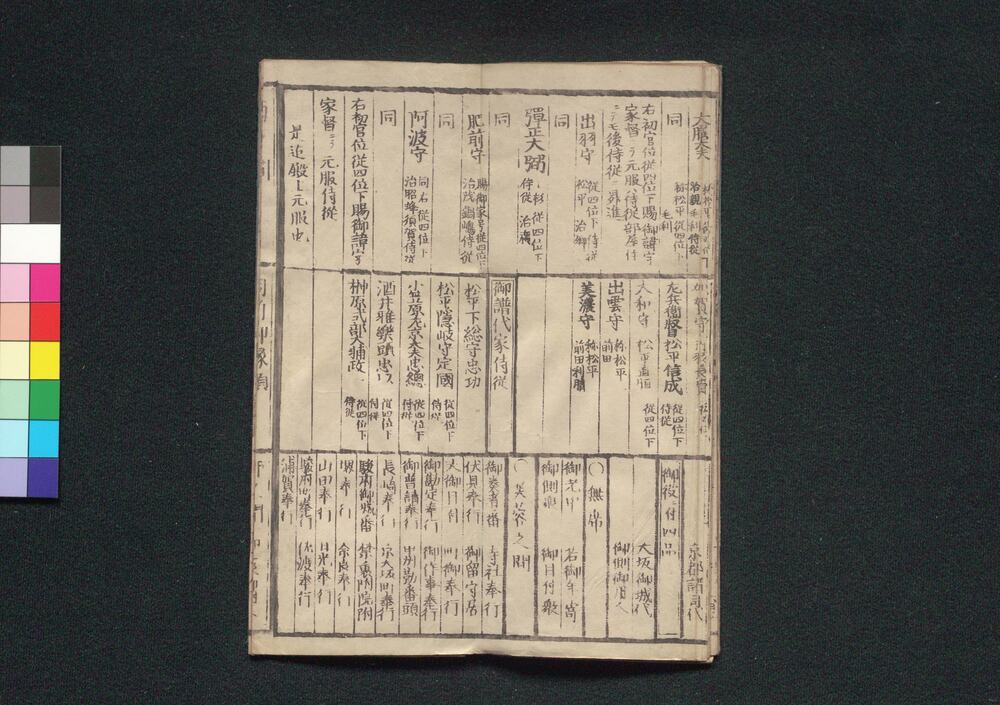 大膳大夫
治親 毛利侍従
同
称松平 従四位下
毛利
右初官位従四位下賜御諱字
家督ニテ元服侍従部屋住
ニテモ後侍従ニ昇進
出羽守
従四位下侍従
松平 治郷
同
弾正大弼
上杉従四位下
侍従 治廣
同
肥前守
賜御家号従四位下
治茂鍋嶋侍従
同
阿波守
同右従四位下
治昭蜂須賀侍従
同
右初官位従四位下賜御諱字
家督ニテ元服侍従
是迄殿上元服也
左兵衛督 松平信成
従四位下
侍従
大和守 松平直恒
従四位下
出雲守
称松平
前田
美濃守
称松平
前田利
御譜代家侍従
松平下総守忠功
松平隠岐守定國
従四位下
侍従
小笠原左京大夫忠總
従四位下
侍従
酒井雅樂頭忠以
従四位下
侍従
榊原式部大輔政
従四位下
侍従
御役付四品
京都諸司代
大坂御城代
御側御用人
〇無席
御老中 若御年寄
御側衆 御目付衆
〇芙蓉之間
御奏者番 寺社奉行
伏見奉行 御留守居
大御目付 町御奉行
御勘定奉行 御作事奉行
御普請奉行 甲州勤番頭
長崎奉行 京大坂町奉行
駿府御城番 禁裏附院附
堺奉行 奈良奉行
山田奉行 日光奉行
駿府町奉行 佐渡奉行
浦賀奉行